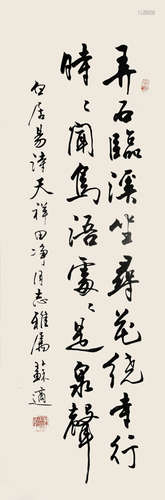 弄石臨溪坐尋花繞寺行
時時聞鳥語處處是泉聲
白居易詩天祥田净同志雅屬蘇適